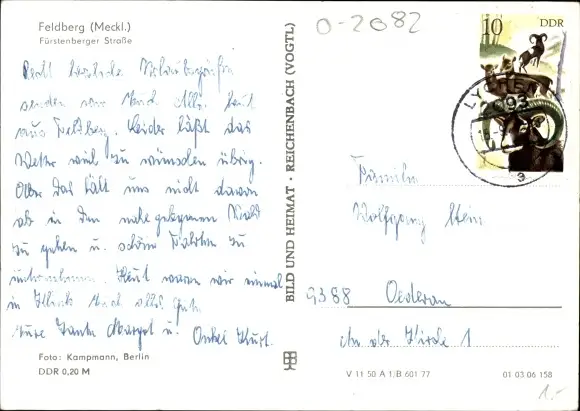 Feldberg (Meckl.)
Fürstenberger Straße
Recht herzliche Urlaubsgrüße
senden wir Euch Allen heut
aus Feldberg. Leider läßt das
Wetter viel zu wünschen übrig.
Aber das hält uns nicht davon
ab in den nahe gelegenen Wald
zu gehen u. schöne Fahrten zu
unternehmen. Heut waren wir einmal
in
Eure Tante Margot u. Onkel Kurt.
Foto: Kampmann, Berlin
DDR 0,20 M
BILD UND HEIMAT · REICHENBACH (VOGTL)
0-2082
10 DDR
LYCHEN
2093
a
Familie
Wolfgang Stein
9388 Oederan
An der Kirche 1
V 11 50 A 1/B 601 77
01 03 06 158
1.-